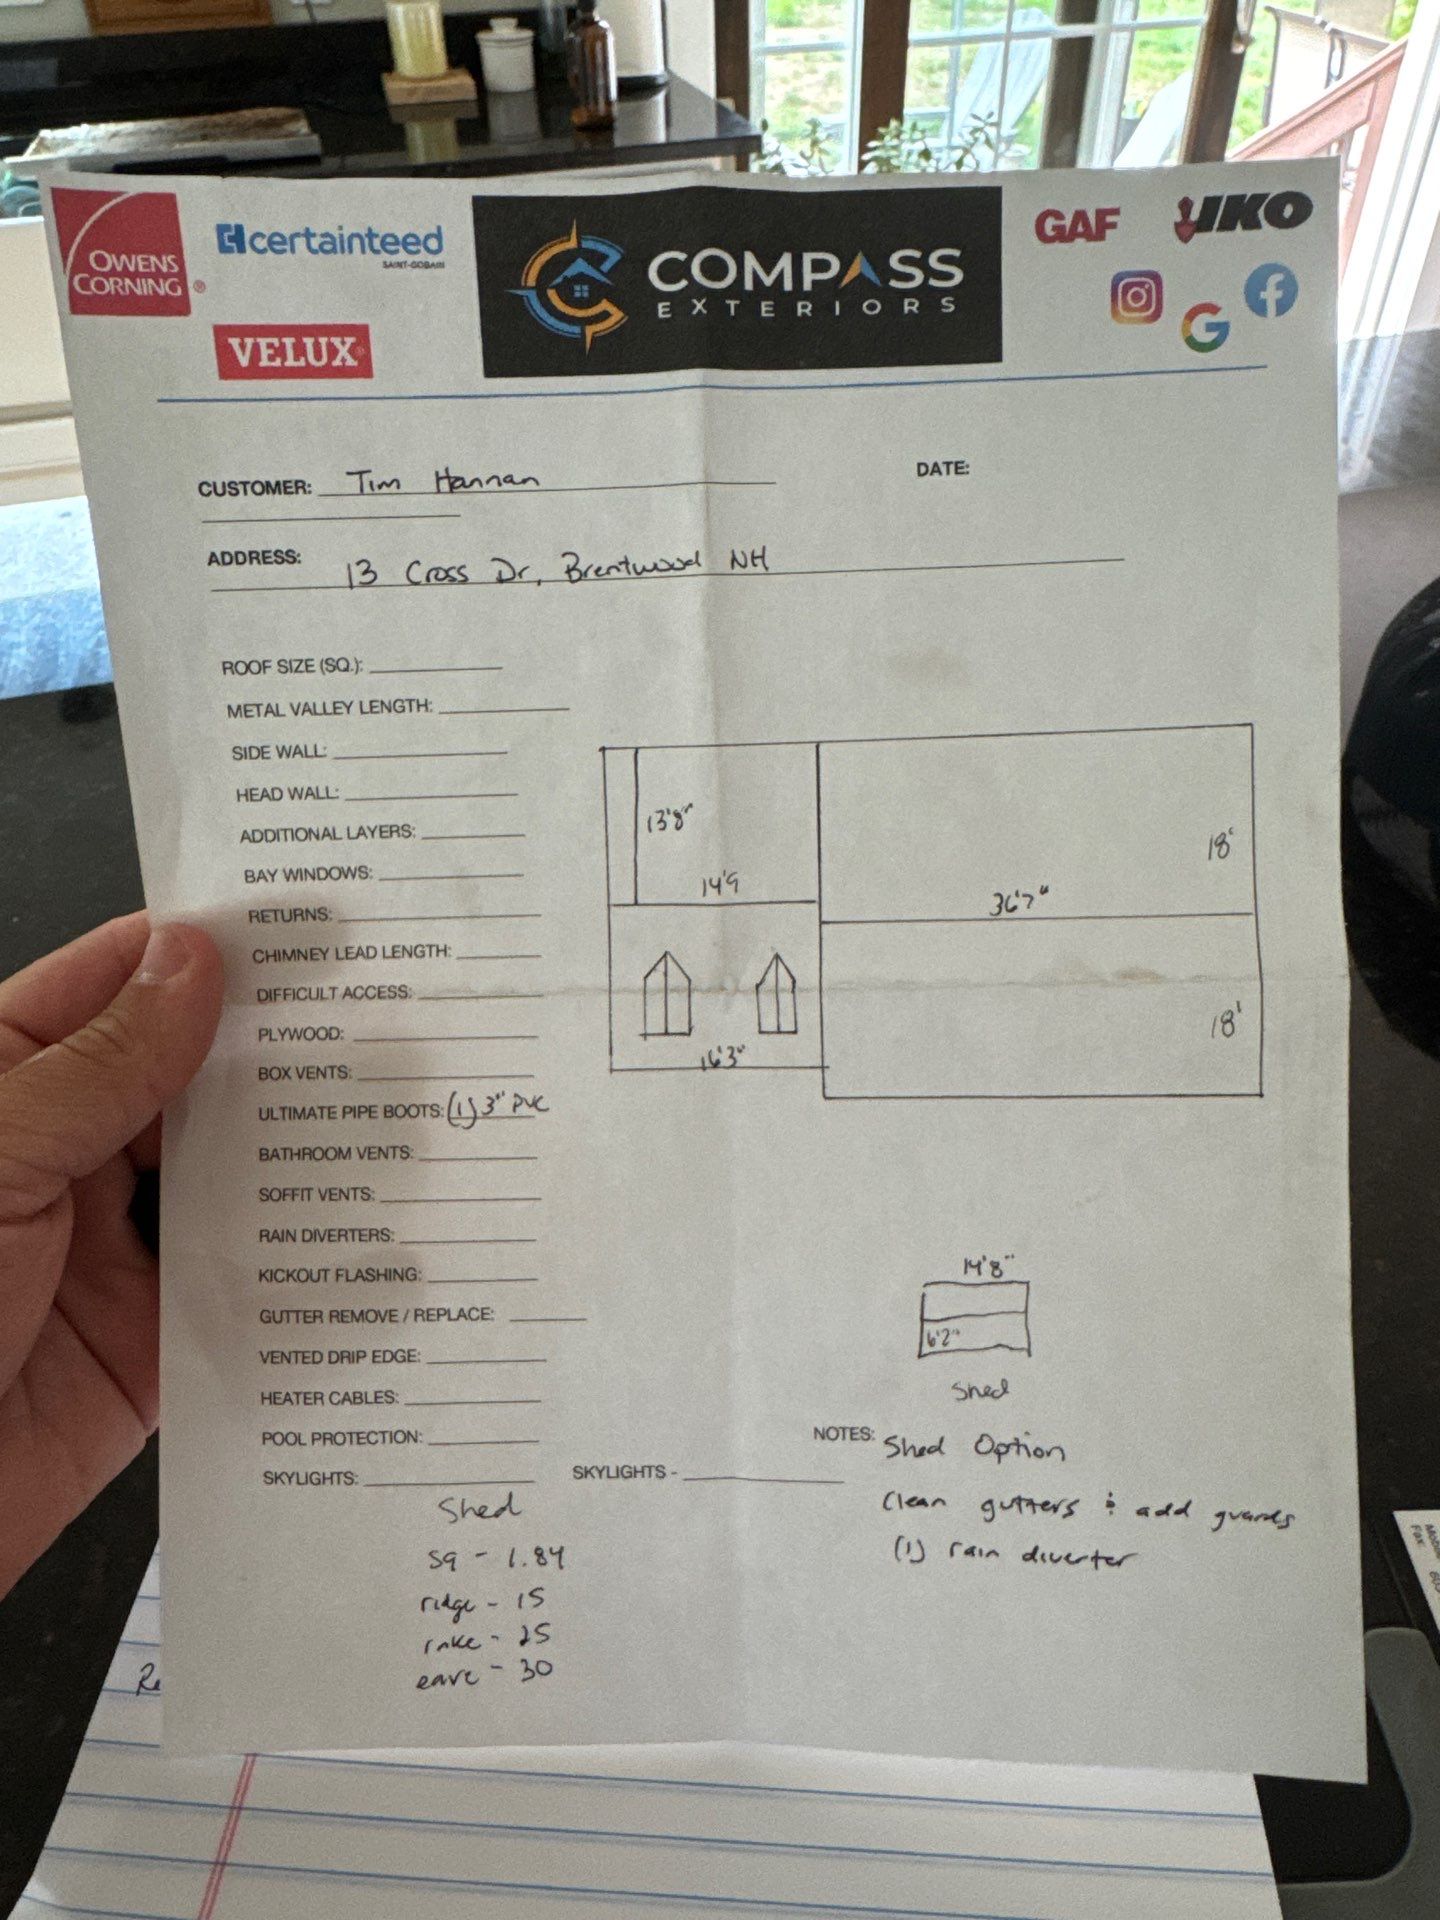 OWENS CORNING®
certainteed
SAINT-GOBAIN
VELUX®
COMPASS
EXTERIORS
GAF
IKO
CUSTOMER: Tim Hannan
DATE:
ADDRESS: 13 Cross Dr, Brentwood NH
ROOF SIZE (SQ.):
METAL VALLEY LENGTH:
SIDE WALL:
HEAD WALL:
ADDITIONAL LAYERS:
BAY WINDOWS:
RETURNS:
CHIMNEY LEAD LENGTH:
DIFFICULT ACCESS:
PLYWOOD:
BOX VENTS:
ULTIMATE PIPE BOOTS: (1) 3" PVC
BATHROOM VENTS:
SOFFIT VENTS:
RAIN DIVERTERS:
KICKOUT FLASHING:
GUTTER REMOVE / REPLACE:
VENTED DRIP EDGE:
HEATER CABLES:
POOL PROTECTION:
SKYLIGHTS:
SKYLIGHTS -
13'8"
14'9
18'
36'7"
18'
16'3"
14'8"
6'2"
Shed
NOTES: Shed Option
Clean gutters & add guards
(1) rain diverter
Shed
Sq - 1.84
ridge - 15
rake - 25
eave - 30